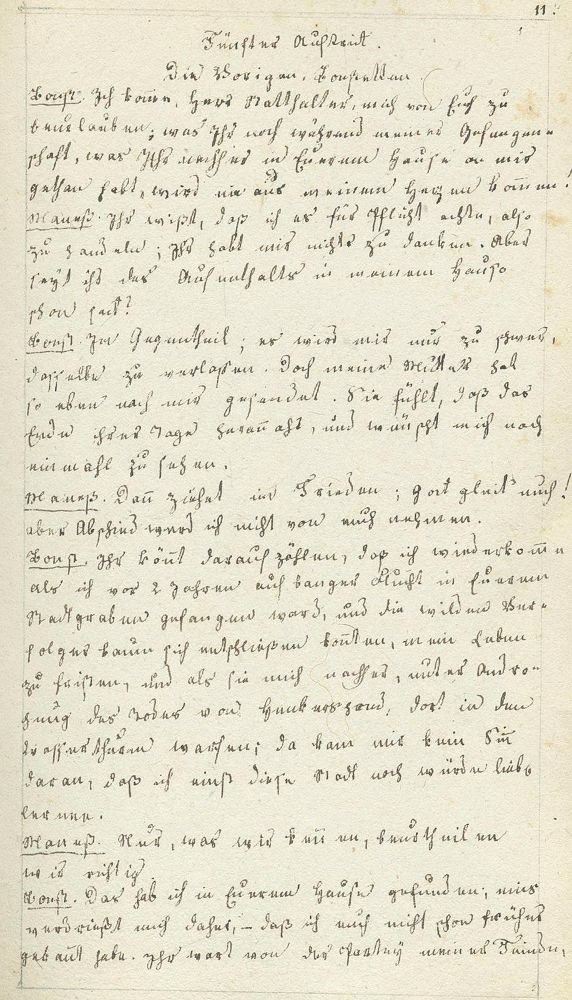 11.
Fünfter Auftritt.
Die Vorigen, Bonstetten.
Bonst. Ich komme, Herr Statthalter, mich von Euch zu
beurlauben; was Ihr noch während meiner Gefangen=
schaft, was Ihr nachher in Euerem Hause an mir
gethan habt, wird nie aus meinem Herzen kommen!
Maneß. Ihr wißt, daß ich es für Pflicht achte, also
zu handeln; Ihr habt mir nichts zu danken. Aber
seyt ihr des Aufenthalts in meinem Hause
schon satt?
Bonst. Im Gegentheil; es wird mir nur zu schwer,
dasselbe zu verlassen. Doch meine Mutter hat
so eben nach mir gesendet. Sie fühlt, daß das
Ende ihrer Tage herannaht, und wünscht mich noch
einmahl zu sehen.
Maneß. Dann ziehet im Frieden; Gott gleit' euch!
aber Abschied werd ich nicht von euch nehmen.
Bonst. Ihr könnt darauf zählen, daß ich wiederkomme
Als ich vor 2 Jahren auf banger Flucht in Euerem
Stadtgraben gefangen ward, und die wilden Ver=
folger kaum sich entschließen konnten, mein Leben
zu fristen, und als sie mich nachher, unter Andro=
hung des Todes von Henkershand, dort in den
Wasserthurm warfen; da kam mir kein Sinn
daran, daß ich einst diese Stadt noch würde lieb
lernen.
Maneß. Nur, was wir kennen, beurtheilen
wir richtig.
Bonst. Das hab ich in Euerem Hause gefunden; mich
verdrießt mich daher, – daß ich euch nicht schon früher
gekannt habe. Ihr wart von der Partey meiner Feinde,